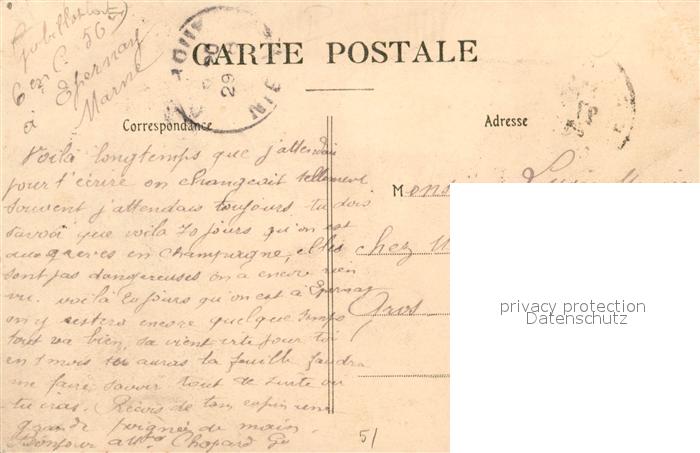 6em C. 56
à Epernay
Marne
CARTE POSTALE
29
Correspondance
Adresse
Voilà longtemps que j'attendais
pour t'écrire on changeait tellement
souvent j'attendais toujours. tu dois
savoir que voilà 70 jours qu'on est
aux grèves en Champagne, elles
sont pas dangereuses on a encore rien
vu. voilà 20 jours qu'on est à Epernay
on y restera encore quelque temps
tout va bien, sa vient
pour toi
en 1 mois tu auras ta feuille faudra
me faire savoir tout de suite ou
tu iras. Reçois de ton copin une
grande poignée de main.
Bonjour
Chopard
Monsieur
chez
Gros
privacy protection
Datenschutz
51